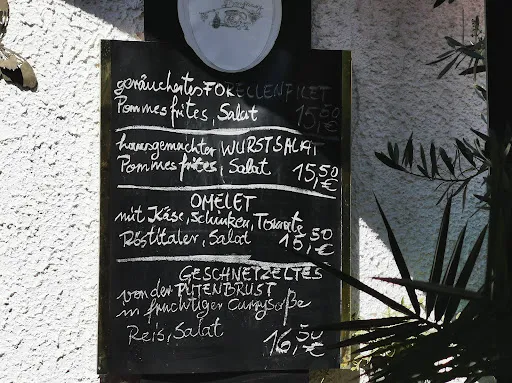 geräuchertes FORELLENFILET
Pommes frites, Salat 15,50 €
hausgemachter WURSTSALAT
Pommes frites, Salat 15,50 €
OMELET
mit Käse, Schinken, Tomate
Röstitaler, Salat 15,50 €
GESCHNETZELTES
von der PUTENBRUST
in fruchtiger Currysoße
Reis, Salat 16,50 €